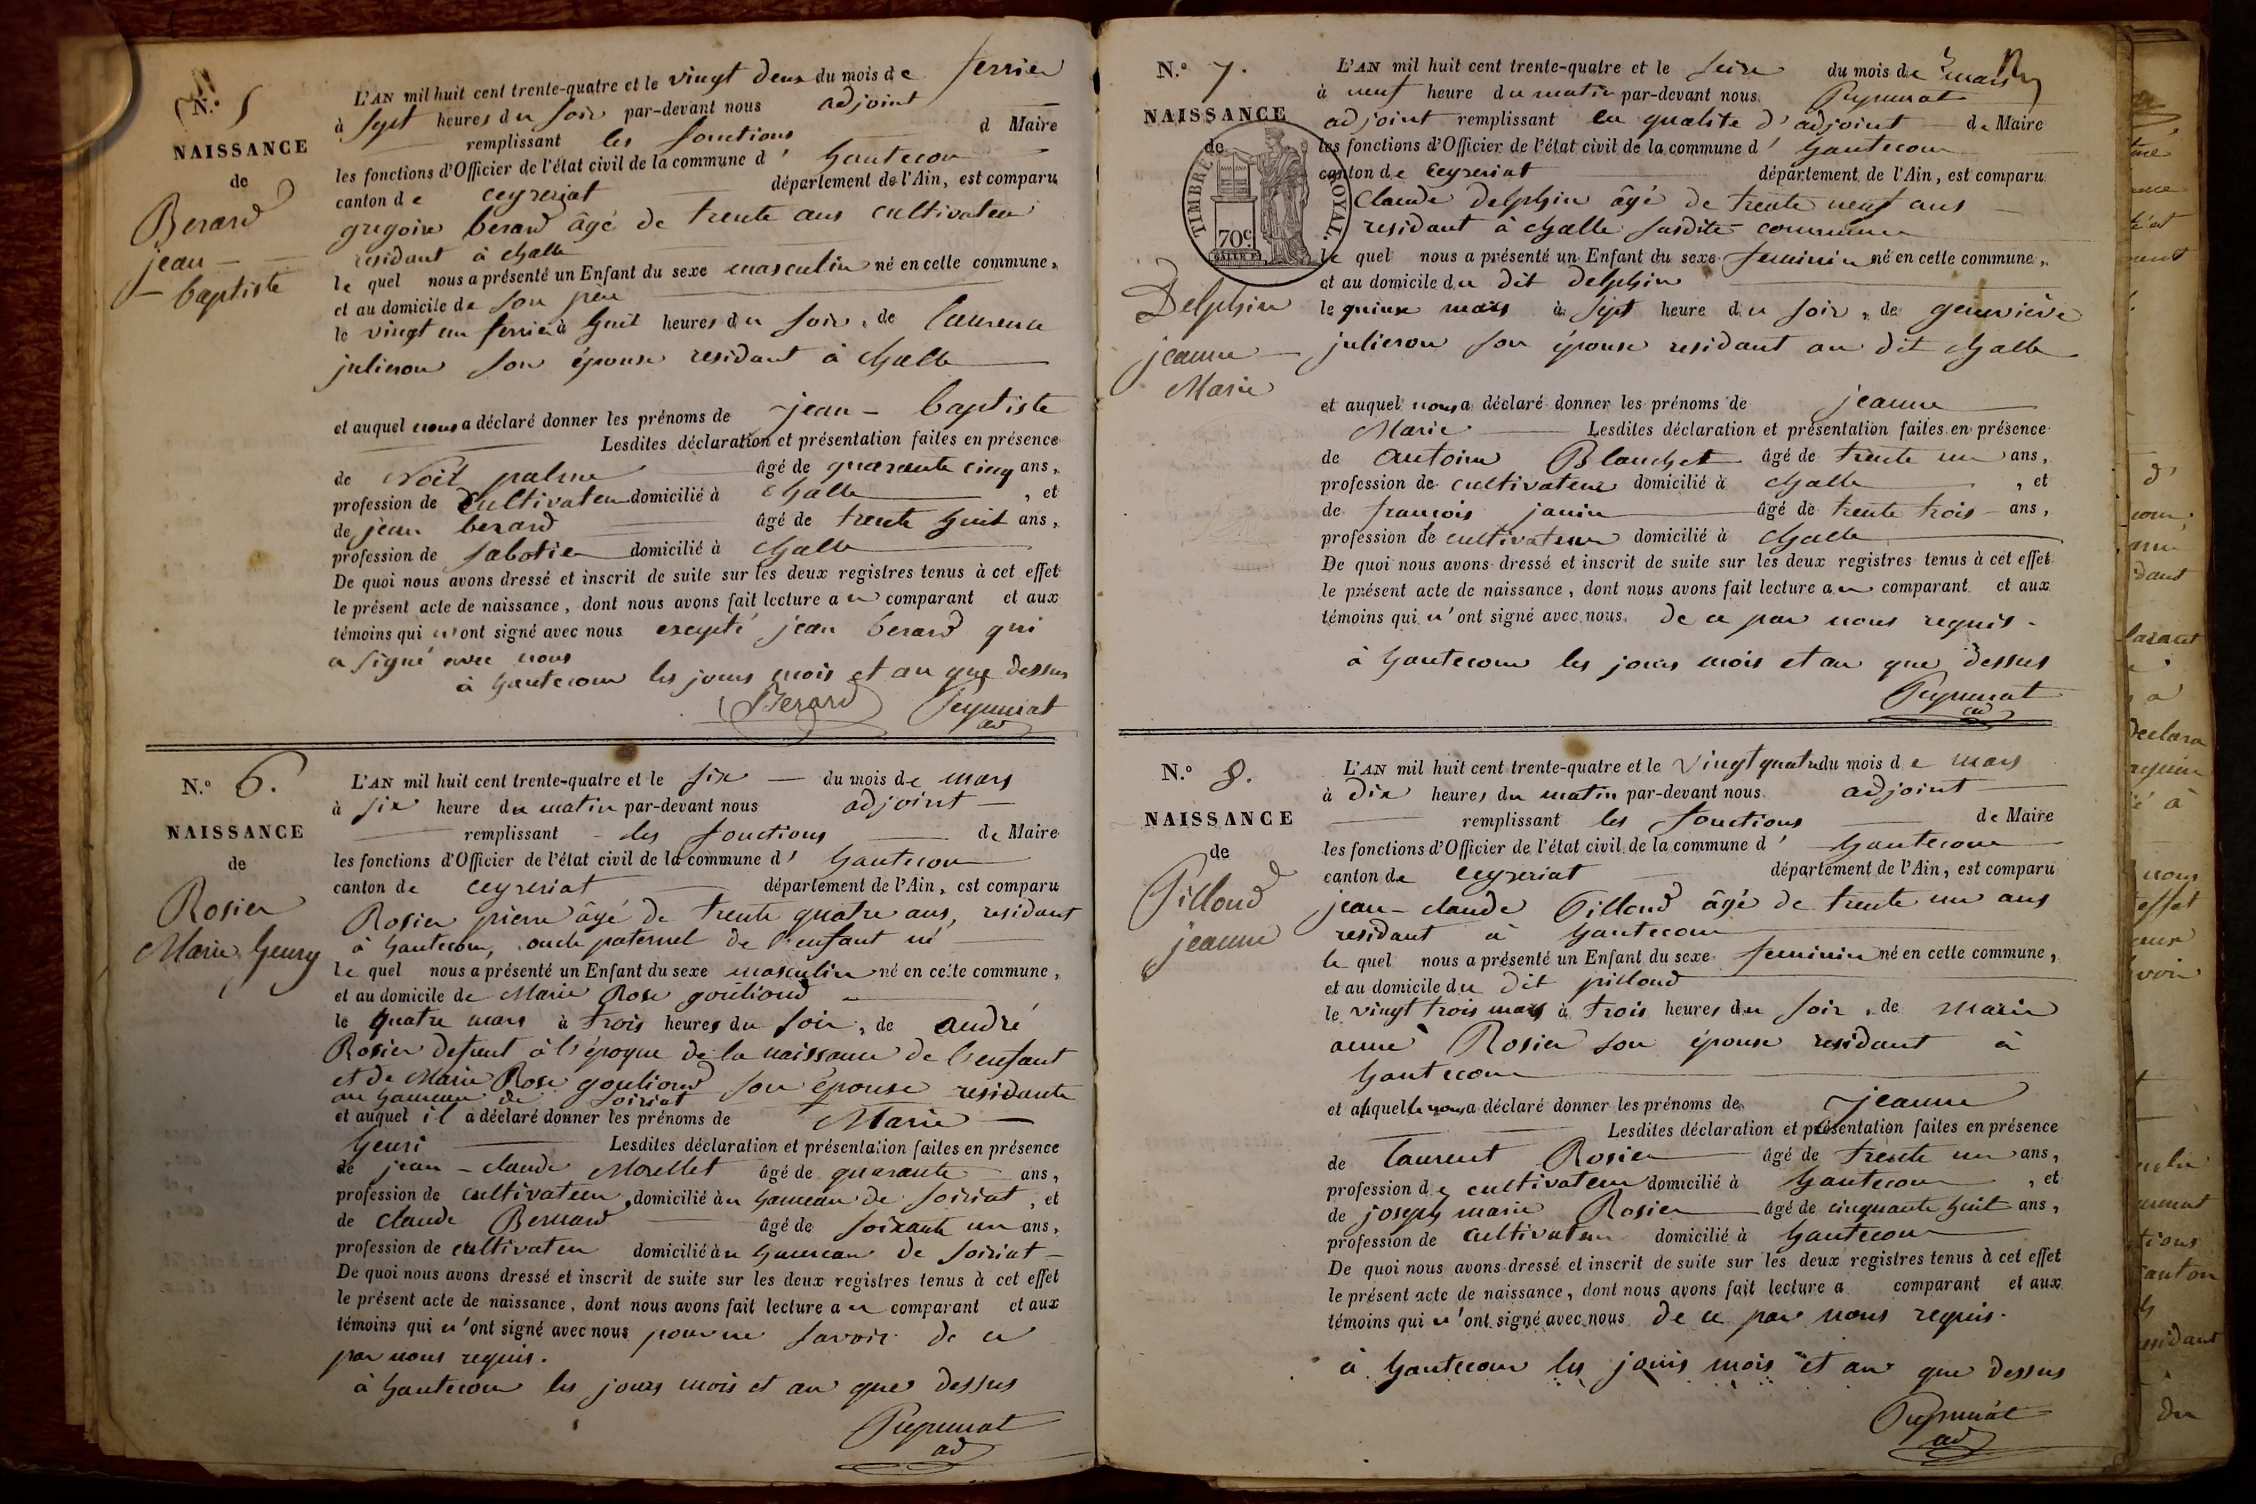 N.° 5
NAISSANCE
de
Berard
jean —
— baptiste
L'AN mil huit cent trente-quatre et le vingt deux du mois de fevrier
à sept heures du soir par-devant nous adjoint
remplissant les fonctions d Maire
les fonctions d'Officier de l'état civil de la commune d' hautecour
canton de ceyzeriat département de l'Ain, est comparu
gregoire berard âgé de trente ans cultivateur
residant à challe
le quel nous a présenté un Enfant du sexe masculin né en cette commune,
et au domicile de son père
le vingt un fevrier à huit heures du soir, de laurence
julieron son épouse residant à challe
et auquel nous a déclaré donner les prénoms de jean - baptiste
Lesdites déclaration et présentation faites en présence
de Noël palme âgé de quarante cinq ans,
profession de cultivateur domicilié à challe, et
de jean berard âgé de trente huit ans,
profession de sabotier domicilié à challe
De quoi nous avons dressé et inscrit de suite sur les deux registres tenus à cet effet
le présent acte de naissance, dont nous avons fait lecture au comparant et aux
témoins qui n'ont signé avec nous excepté jean berard qui
a signé avec nous
à hautecour les jours mois et an que dessus
Berard
ad
N.° 6.
NAISSANCE
de
Rosier
Marie henry
L'AN mil huit cent trente-quatre et le six — du mois de mars
à six heure du matin par-devant nous adjoint —
remplissant - les fonctions de Maire
les fonctions d'Officier de l'état civil de la commune d' hautecour
canton de ceyzeriat département de l'Ain, est comparu
Rosier pierre âgé de trente quatre ans, residant
à hautecour, oncle paternel de l'enfant né
le quel nous a présenté un Enfant du sexe masculin né en cette commune,
et au domicile de Marie Rose goulioud
le quatre mars à trois heures du soir, de andré
Rosier defunt à l'époque de la naissance de l'enfant
et de Marie Rose goulioud son épouse residante
au hameau de soiriat
et auquel il a déclaré donner les prénoms de Marie —
henri Lesdites déclaration et présentation faites en présence
de jean - claude Morellet âgé de quarante ans,
profession de cultivateur domicilié au hameau de soiriat, et
de claude Bernard âgé de soixante un ans,
profession de cultivateur domicilié au hameau de soiriat —
De quoi nous avons dressé et inscrit de suite sur les deux registres tenus à cet effet
le présent acte de naissance, dont nous avons fait lecture au comparant et aux
témoins qui n'ont signé avec nous pour ne savoir de ce
par nous requis.
à hautecour les jours mois et an que dessus
ad
N.° 7.
NAISSANCE
de
TIMBRE ROYAL.
70c
Delphin
jeanne
Marie
L'AN mil huit cent trente-quatre et le seize du mois de mars
à neuf heure du matin par-devant nous
adjoint remplissant en qualité d'adjoint de Maire
les fonctions d'Officier de l'état civil de la commune d' hautecour
canton de ceyzeriat département de l'Ain, est comparu
Claude delphin âgé de trente neuf ans
residant à challe susdite commune
le quel nous a présenté un Enfant du sexe feminin né en cette commune,
et au domicile du dit delphin
le quinze mars à sept heure du soir, de genevieve
julieron son épouse residant au dit challe
et auquel nous a déclaré donner les prénoms de jeanne
Marie Lesdites déclaration et présentation faites en présence
de antoine Blanchet âgé de trente un ans,
profession de cultivateur domicilié à challe, et
de francois janin âgé de trente trois ans,
profession de cultivateur domicilié à challe
De quoi nous avons dressé et inscrit de suite sur les deux registres tenus à cet effet
le présent acte de naissance, dont nous avons fait lecture au comparant et aux
témoins qui n'ont signé avec nous. de ce par nous requis.
à hautecour les jours mois et an que dessus
ad
N.° 8.
NAISSANCE
de
Pilloud
jeanne
L'AN mil huit cent trente-quatre et le vingt quatre du mois de mars
à dix heures du matin par-devant nous adjoint
remplissant les fonctions de Maire
les fonctions d'Officier de l'état civil de la commune d' hautecour
canton de ceyzeriat département de l'Ain, est comparu
jean - claude Pilloud âgé de trente un ans
residant à hautecour
le quel nous a présenté un Enfant du sexe feminin né en cette commune,
et au domicile du dit pilloud
le vingt trois mars à trois heures du soir, de marie
anne Rosier son épouse residant à
hautecour
et auquelle nous a déclaré donner les prénoms de jeanne
Lesdites déclaration et présentation faites en présence
de laurent Rosier âgé de trente un ans,
profession de cultivateur domicilié à hautecour, et
de joseph marie Rosier âgé de cinquante huit ans,
profession de cultivateur domicilié à hautecour
De quoi nous avons dressé et inscrit de suite sur les deux registres tenus à cet effet
le présent acte de naissance, dont nous avons fait lecture a comparant et aux
témoins qui n'ont signé avec nous. de ce par nous requis.
à hautecour les jours mois et an que dessus
ad